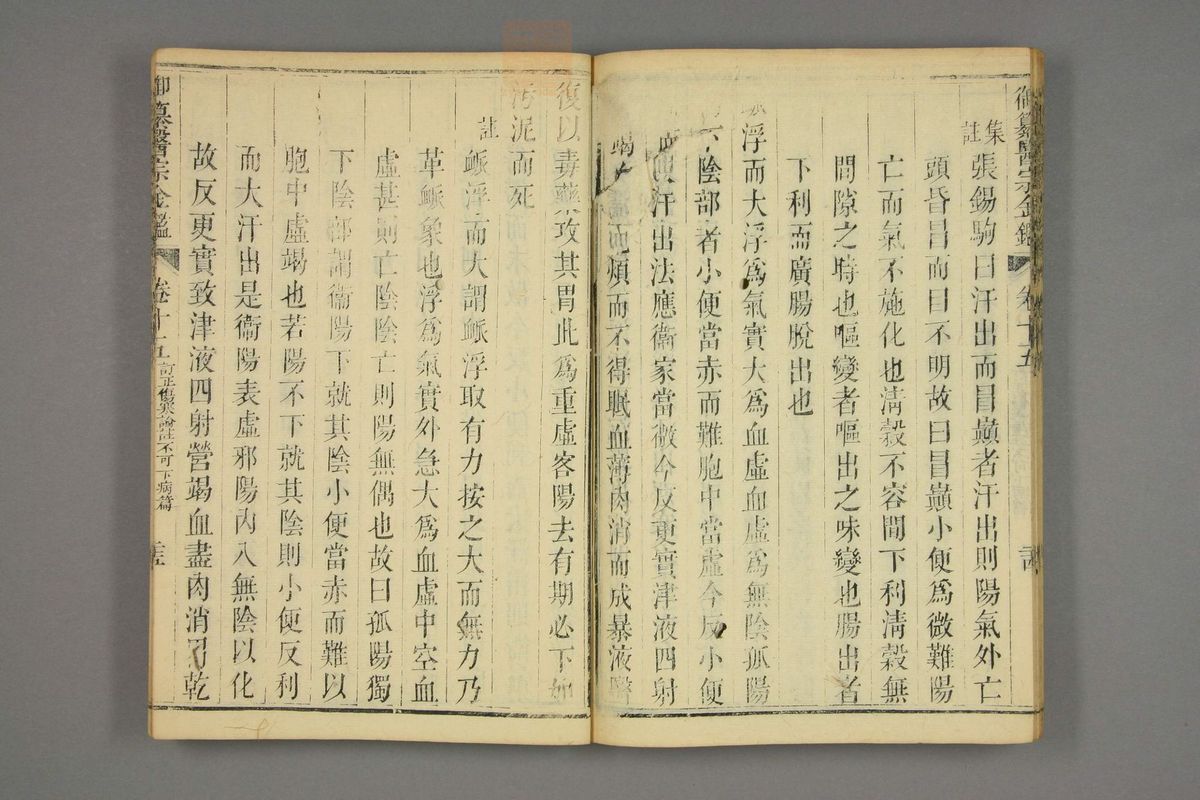 御纂醫宗金鑑 卷十五
集註張錫駒曰汗出而冒巔者汗出則陽氣外亡
頭昏昌而曰不明故曰冒巔小便為微難陽
亡而氣不施化也清穀不容間下利清穀無
間隙之時也嘔變者嘔出之味變也腸出者
下利而廣腸脫出也
浮而大浮為氣實大為血虛血虛為無陰孤陽
下陰部者小便當赤而難胞中當虛今反小便
汗出法應衞家當微今反更實津液四射
竭 煩而不得眠血薄肉消而成暴液醫
復以毒藥攻其胃此為重虛客陽去有期必下如
污泥而死
註脈浮而大謂脈浮取有力按之大而無力乃
革脈象也浮為氣實外急大為血虛中空血
虛甚則亡陰陰亡則陽無偶也故曰孤陽獨
下陰部謂衞陽下就其陰小便當赤而難以
胞中虛竭也若陽不下就其陰則小便反利
而大汗出是衞陽表虛邪陽內入無陰以化
故反更實致津液四射營竭血盡肉消乾
御纂醫宗金鑑 卷十五 訂正傷寒論註不可下病篇